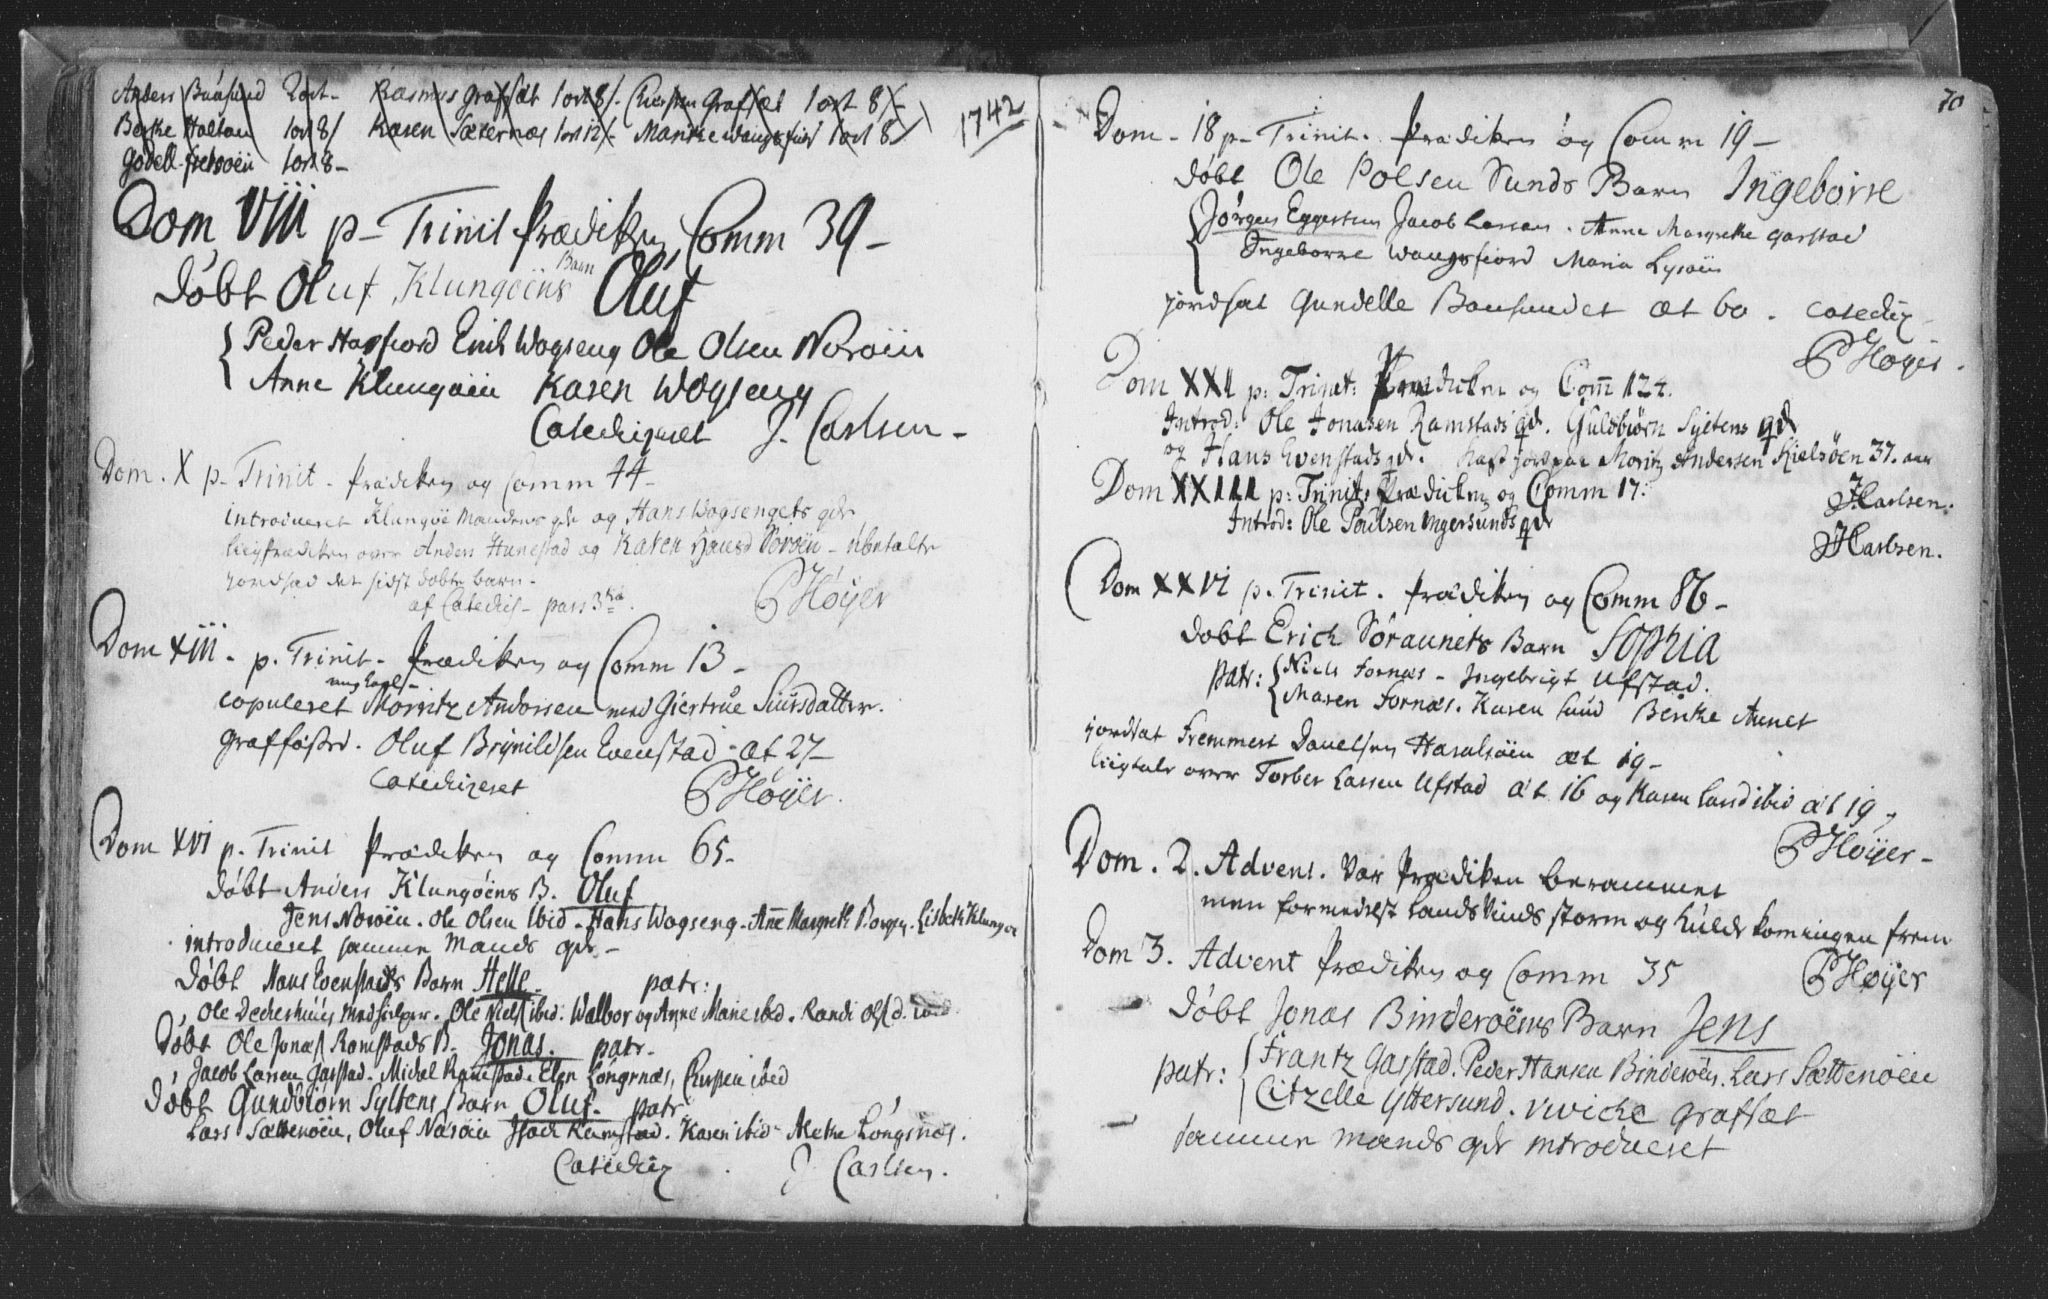 Anders Baasund 2ort - Rasmus Grafsæt 1ort 8/. Chersten Grafsæt 1ort 8/-
Berke Holtan 1ort 8/ Karen Sæternæs 1ort 12/- Maritte Wangsfiord 1ort 8/
Godell 1ort 8-
1742
Dom VIII p- Trinit Prædiken Comm 39-
døbt Oluf Klungøens Barn Oluf
Peder Hopfiord Erich Wogseng Ole Olsen Norøen
Anne Klungøen Karen Wogseng
Catechizeret J. Carlsen -
Dom. X p- Trinit - Prædiken og Comm 44-
introduceret Klungøe Mandens qdr og Hans Wogsengets qdr
ligprædiken over Anders Hunestad og Karen Hansd Norøen - ubetalte
jordsad det sidst døbte barn -
af Catechis - pars 3tia.
P Høyer
Dom XIII - p. Trinit - Prædiken og Comm 13 -
ung Karl -
copuleret Morritz Andersen med Giertrue Siursdatter.
Graffæsted. Oluf Brynildsen Evenstad - æt 27-
Catechizeret P Høyer.
Dom XVI p. Trinit Prædiken og Comm 65-
døbt Anders Klungøens B. Oluf
Jens Norøen. Ole Olsen ibid - Hans Wogseng - Anne Margreth Borgen. Lisbeth Klungøe
introduceret samme Mands qdr -
Døbt Hans Evenstads Barn Helle - patr:
Ole medhielper. Ole Niels: ibid. Walbor og Anne Marie ibid. Randi Ols d. ibid
Døbt Ole Jonæs Romstads B. Jonas. patr.
Jacob Larsen Garstad. Michel Ramstad. Elen Longnæs, Chersten ibid
Døbt Gundbiørn Syltens Barn Oluf. patr
Lars Sættenøen, Oluf Norøen Isach Ramstad. Karen ibid - Mette Longsnæs.
Catechiz J Carlsen.
70
Dom - 18 p- Trinit. Prædiken og Comm 19 -
døbt Ole Polsen Sunds Barn Ingeborre
Jørgen Eggertsen Jacob Larsen. Anne Margrethe Garstad
Ingeborre Wangsfiord Maria Lysøen
jordsat Gundelle Baasundet æt 60. Catechiz -
P Høyer.
Dom XXI p: Trinit: Prædicken og Com 124.
Introd: Ole Jonasen Ramstads qdr. Guldbiørn Syltens qdr
og Hans Evenstads qdr. Kast jord paa Moritz Andersen Kielsøen 37. aar
J. Carlsen.
Dom XXIII p: Trinit: Prædicken og Comm 17:
Introd: Ole Paulsen Ingersunds qdr
J Carlsen.
Dom XXVI p. Trinit. Prædiken og Comm 86 -
døbt Erich Søraunets Barn Sophia
patr: Niels Fornæs - Ingebrigt Ufstad.
Maren Fornæs. Karen Sund Berite Aunet
jordsat Fremmert Danelsen Haralsøen æt 19 -
ligtale over Torber Larsen Ufstad æt 16 og Karen ibid æt 19,
P Høyer -
Dom. 2. Advent. Var Prædiken berammet
men formedelst Landvinds storm og kulde kom ingen frem
P Høyer
Dom 3. Advent Prædiken og Comm 35
døbt Jonas Binderøens Barn Jens
patr: Frantz Garstad. Peder Hansen Binderøen. Lars Sættenøen
Citzelle Yttersund. Vivicke Grafsæt
samme Mands qdr introduceret